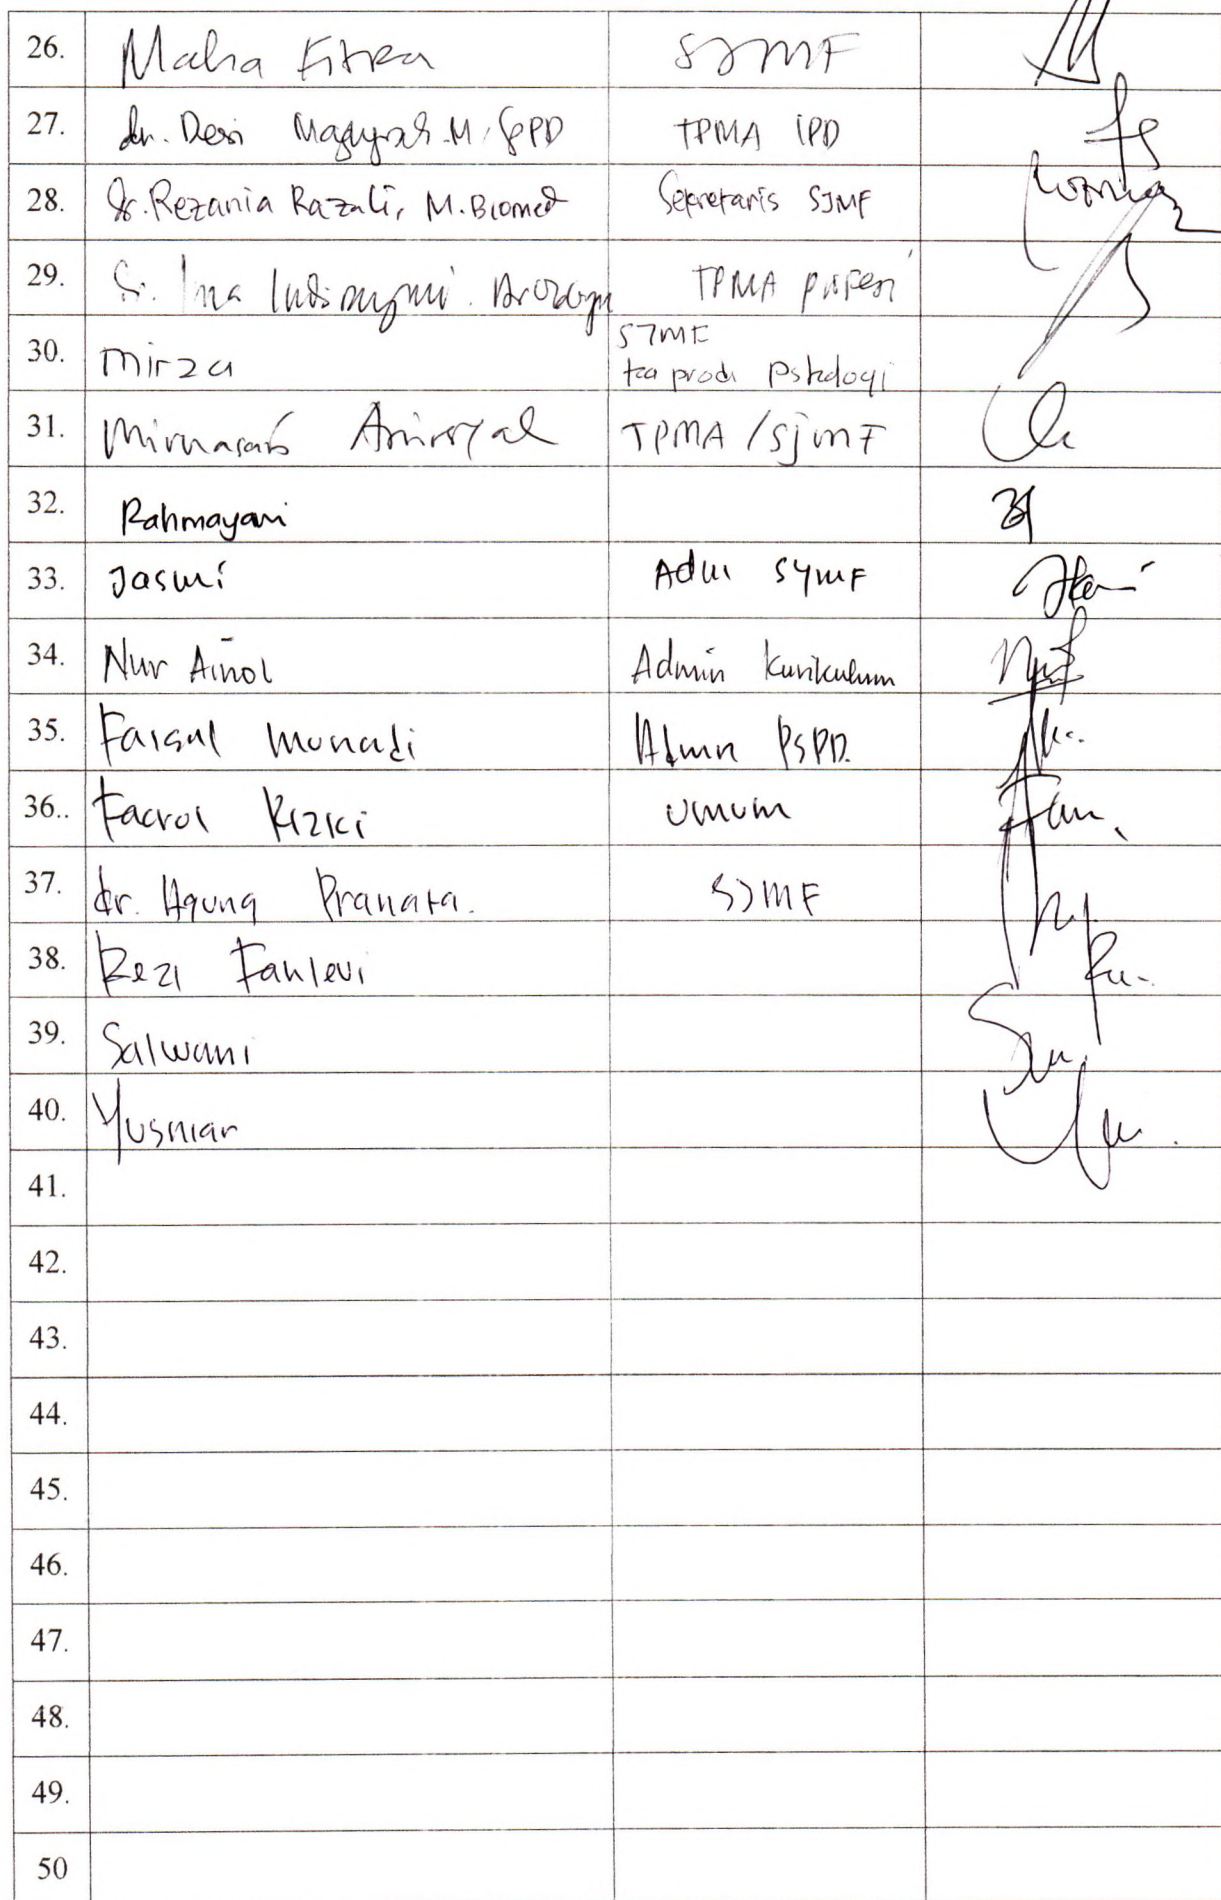 26. Maha Fitra SJMF
27. dr. Desi M. SpPD TPMA IPD
28. dr. Rezania Razali, M.Biomed Sekretaris SJMF
29. Ina TPMA
30. Mirza SJMF
ka prodi Psikologi
31. TPMA / SJMF
32. Rahmayani
33. Jasmi Adm SJMF
34. Nur Ainol Admin Kurikulum
35. Faisal Munadi Admin PSPD.
36.. Facrol Rizki Umum
37. dr. Agung Pranata. SJMF
38. Rezi Fahlevi
39. Salwani
40. Yusniar
41.
42.
43.
44.
45.
46.
47.
48.
49.
50